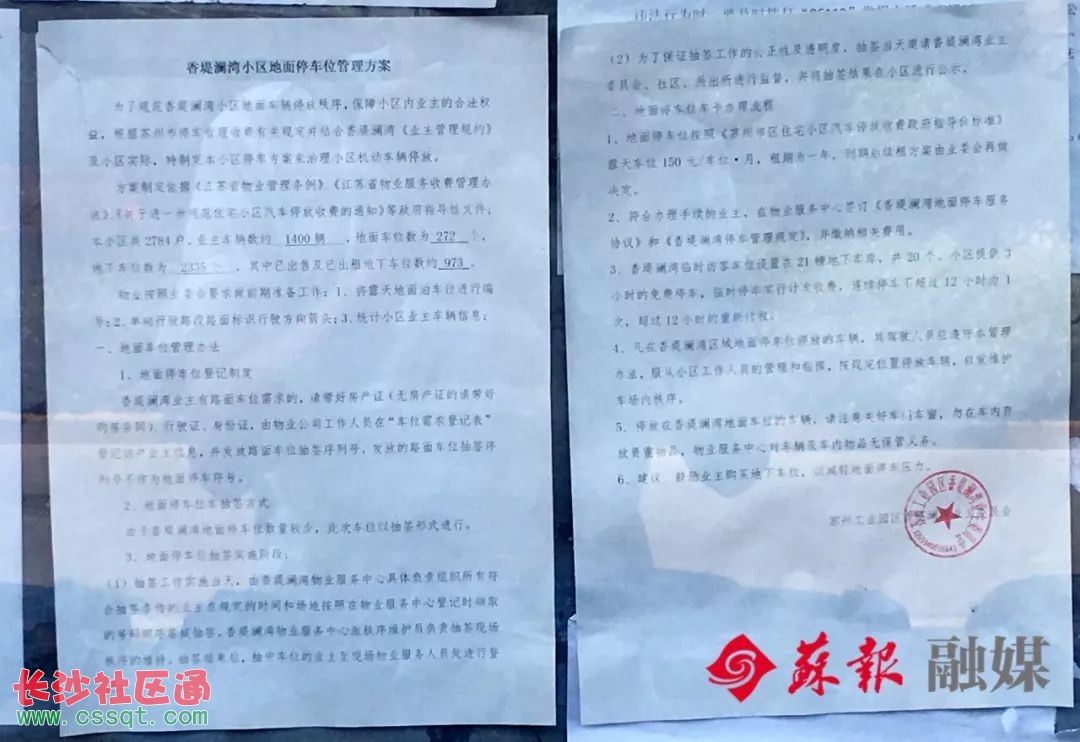 香堤澜湾小区地面停车位管理方案
为了规范香堤澜湾小区地面车辆停放秩序,保障小区内业主的合法权
益,根据苏州市停车管理收费有关规定并结合香堤澜湾《业主管理规约》
及小区实际,特制定本小区停车方案来治理小区机动车辆停放。
方案制定依据《江苏省物业管理条例》《江苏省物业服务收费管理办
法》《关于进一步规范住宅小区汽车停放收费的通知》等政府指导性文件;
本小区共2784户,业主车辆数约 1400辆 ,地面车位数为 272 个,
地下车位数为 2335个 ,其中已出售及已出租地下车位数约 973。
物业按照业委会要求做前期准备工作:1、将露天地面泊车位进行编
号;2、单向行驶路段路面标识行驶方向箭头;3、统计小区业主车辆信息;
一、地面车位管理办法
1、地面停车位登记制度
香堤澜湾业主有路面车位需求的,请带好房产证(无房产证的请带好
购房合同)、行驶证、身份证,由物业公司工作人员在“车位需求登记表”
登记该户业主信息,并发放路面车位抽签序列号,发放的路面车位抽签序
列号不作为地面停车序号。
2、地面停车位车抽签方式
由于香堤澜湾地面停车位数量较少,此次车位以抽签形式进行。
3、地面停车位抽签实施阶段:
(1)抽签工作实施当天,由香堤澜湾物业服务中心具体负责组织所有符
合抽签条件的业主在规定的时间和场地按照在物业服务中心登记时领取
的号码顺序落候抽签。香堤澜湾物业服务中心派秩序维护员负责抽签现场
秩序的维持。抽签结束后,抽中车位的业主至现场物业服务人员处进行登
(2)为了保证抽签工作的公正性及透明度,抽签当天邀请香堤澜湾业主
委员会、社区、派出所进行监督,并将抽签结果在小区进行公示。
二、地面停车位车卡办理流程
1、地面停车位按照《苏州市区住宅小区汽车停放收费政府指导价标准》
露天车位150元/车位·月,租期为一年,到期后续租方案由业委会再做
决定。
2、符合办理手续的业主,在物业服务中心签订《香堤澜湾地面停车服务
协议》和《香堤澜湾停车管理规定》,并缴纳相关费用。
3、香堤澜湾临时访客车位设置在21幢地下车库,共20个。小区提供3
小时的免费停车,临时停车实行计次收费,连续停车不超过12小时为1
次,超过12小时的重新计次。
4、凡在香堤澜湾区域地面停车位停放的车辆,其驾驶人员应遵守本管理
办法,服从小区工作人员的管理和指挥,按规定位置停放车辆,自觉维护
车场内秩序。
5、停放在香堤澜湾地面车位的车辆,请注意关好车门车窗,勿在车内存
放贵重物品,物业服务中心对车辆及车内物品无保管义务。
6、建议、鼓励业主购买地下车位,以减轻地面停车压力。
苏州工业园区
蘇報 融媒
长沙社区通
www.cssqt.com